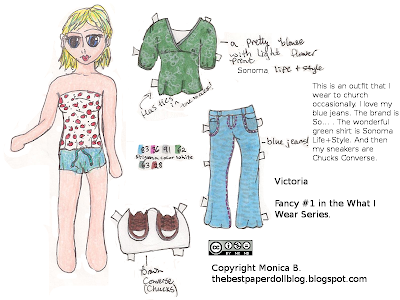 a pretty blouse
with light flower
print
Sonoma life + style
Has ties in the back!
This is an outfit that I
wear to church
occasionally. I love my
blue jeans. The brand is
So. . . . The wonderful
green shirt is Sonoma
Life+Style. And then
my sneakers are
Chucks Converse.
blue jeans!
83 86 91 62
83 28
Victoria
Fancy #1 in the What I
Wear Series.
Brown
Converse
(Chucks)
cc
BY NC ND
Copyright Monica B.
thebestpaperdollblog.blogspot.com